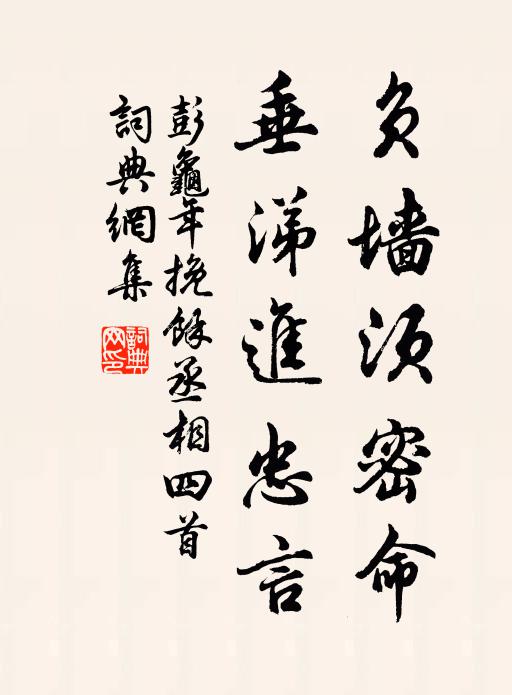 负墙须密命
垂涕進忠言
彭龜年挽餘丞相四首
詞典網集
詞典网印